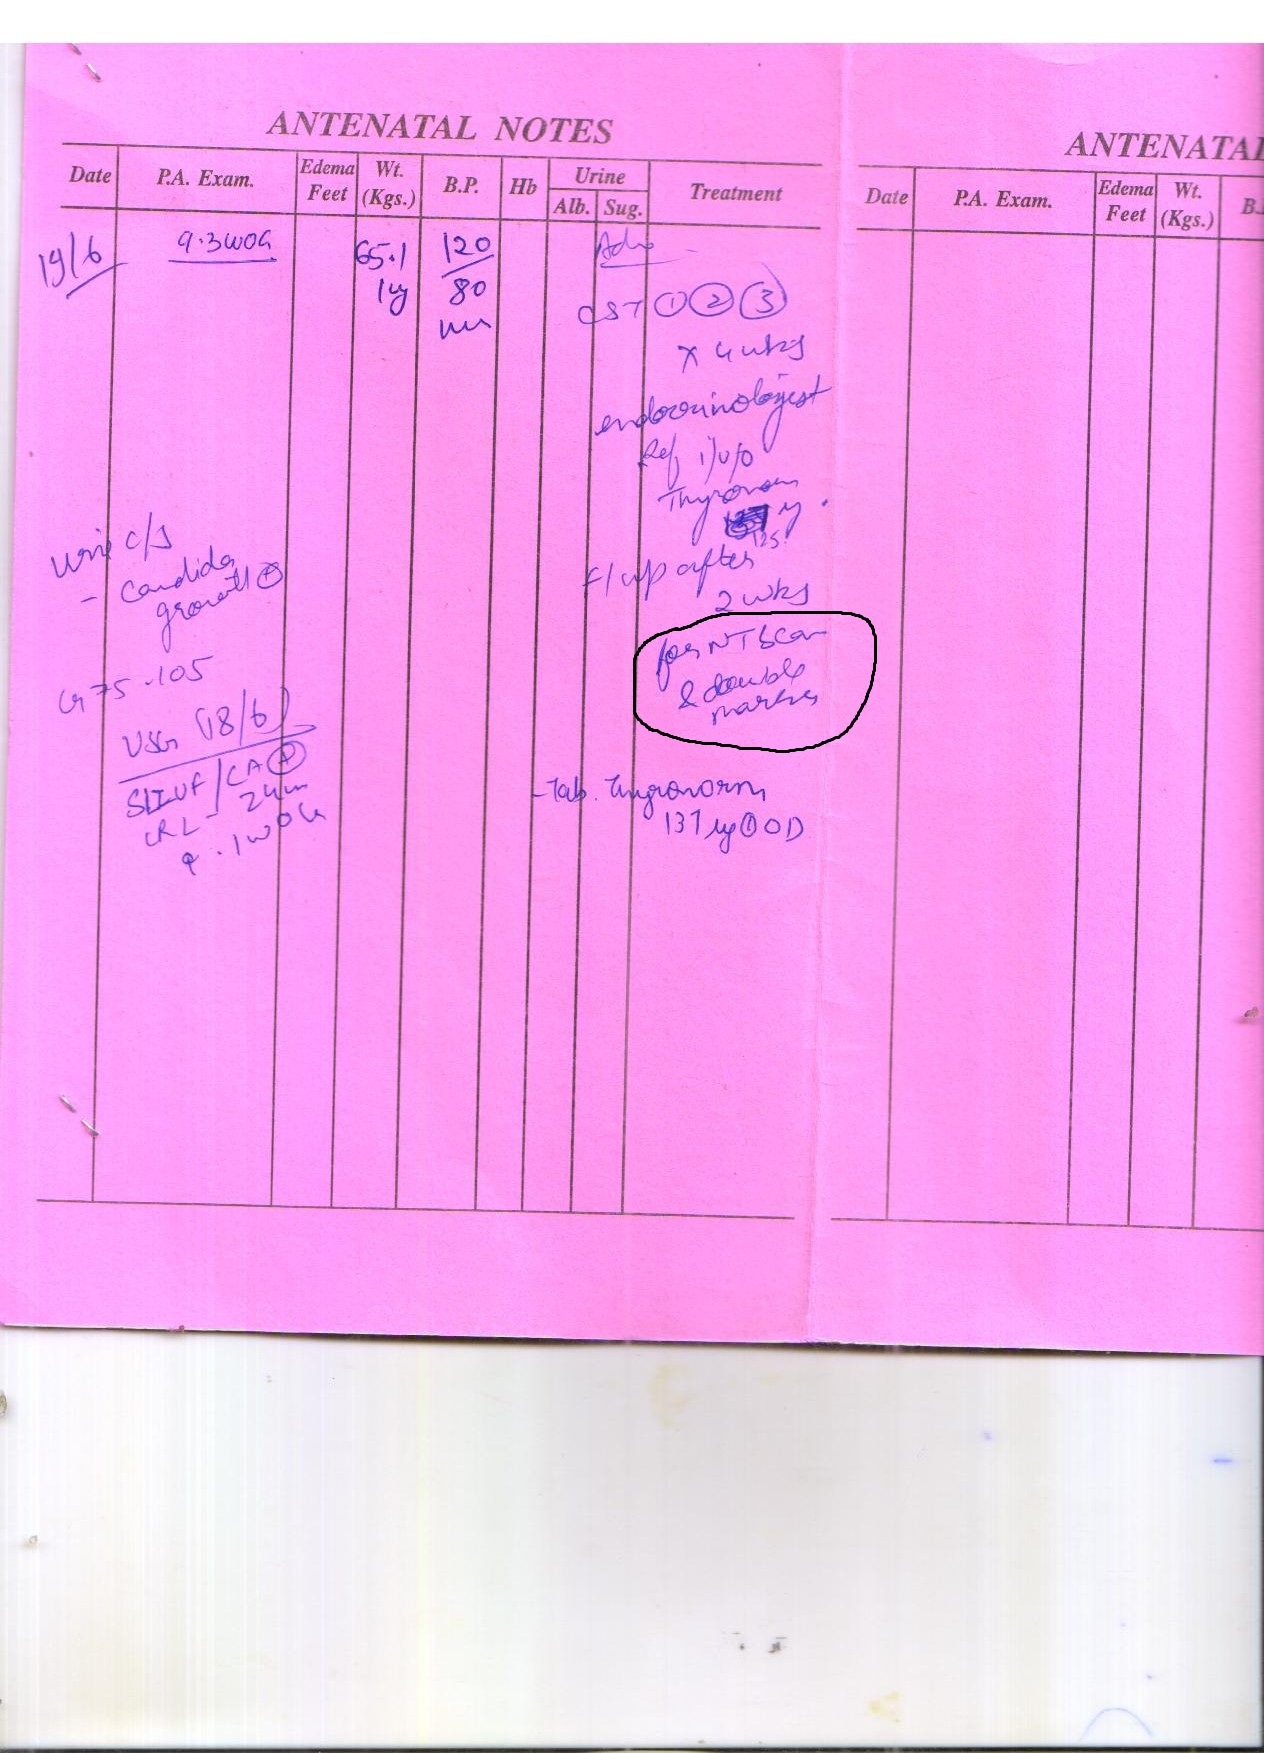 ANTENATAL NOTES
Date P.A. Exam. Edema Feet Wt. (Kgs.) B.P. Hb Urine Alb. Sug. Treatment
19/6 9.3WOG 65.1 kg 120/80 Adv
CST ① ② ③
x 4 wks
endocrinologist
Ref i/v/o
Thyronorm
125
f/up after
2 wks
for NT Scan
& double
marker
- Tab. Thyronorm
137 µg ① OD
Urine c/s
- Candida
growth ⊕
105
USG (18/6)
SLIUF / CA ⊕
CRL - 24mm
9.1WOG
ANTENATAL
Date P.A. Exam. Edema Feet Wt. (Kgs.)